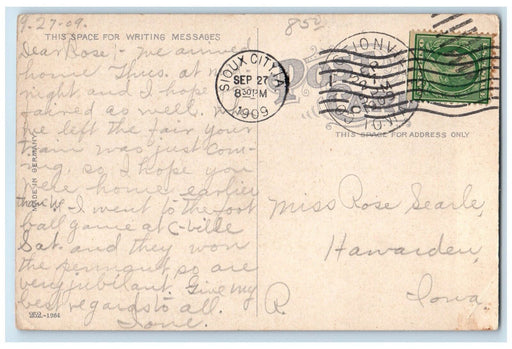 9-27-09.
850
THIS SPACE FOR WRITING MESSAGES
Dear Rose:- We arrived
home Thurs. at
night and I hope you
fared as well. When
we left the fair your
train was just com-
ing, so I hope you
were home earlier
than we. I went to the foot
ball game at C-ville
Sat. and they won
the pennant, so are
very jubilant. Give my
best regards to all.
Ione.
MADE IN GERMANY
252-1964
SIOUX CITY, IA.
SEP 27
8 30 PM
1909
Post Card
THIS SPACE FOR ADDRESS ONLY
Miss Rose Searle,
Hawarden,
R. Iowa